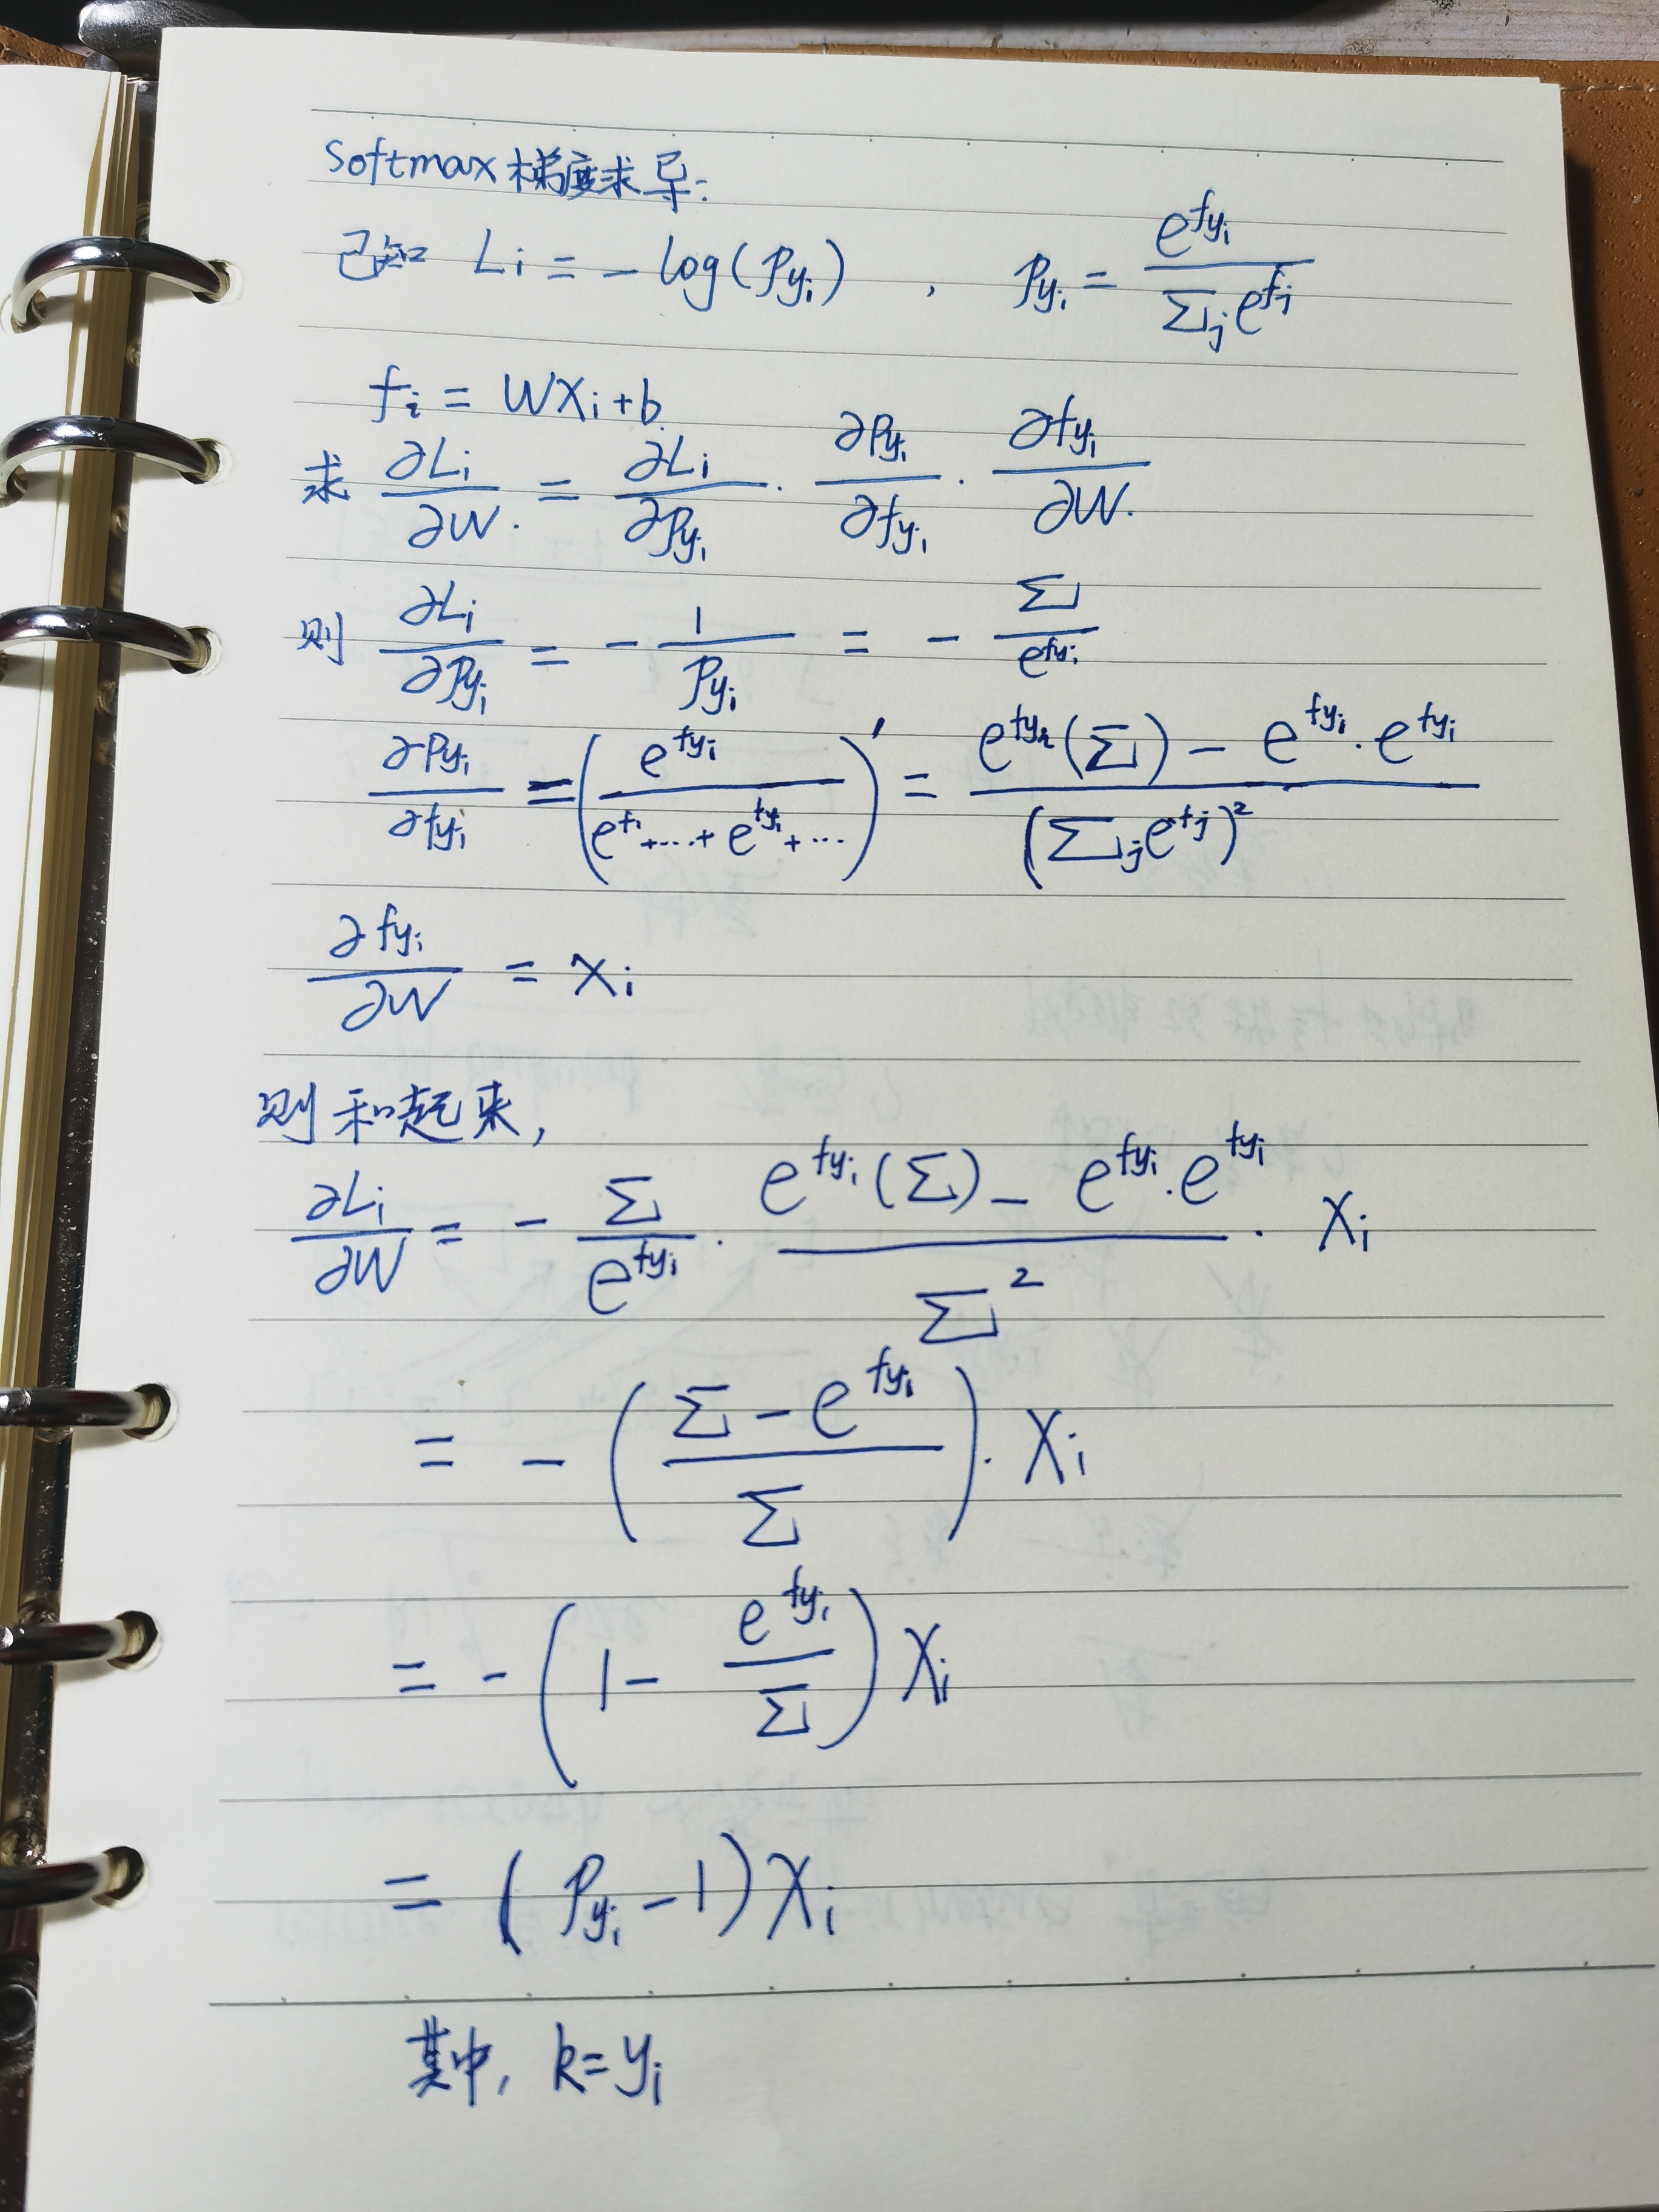 Softmax 梯度求导:
已知 Li = - log(Pyi) , Pyi = e^fyi / Σj e^fj
fi = WXi+b.
求 ∂Li/∂W. = ∂Li/∂Pyi · ∂Pyi/∂fyi · ∂fyi/∂W.
则 ∂Li/∂Pyi = - 1/Pyi = - Σ/e^fyi
∂Pyi/∂fyi = (e^fyi / (e^f1+...+e^fyi+...))′ = (e^fyi(Σ) - e^fyi · e^fyi) / (Σj e^fj)²
∂fyi/∂W = Xi
则和起来,
∂Li/∂W = - Σ/e^fyi · (e^fyi(Σ) - e^fyi · e^fyi) / Σ² · Xi
= - ((Σ - e^fyi) / Σ) · Xi
= - (1 - e^fyi/Σ) Xi
= (Pyi - 1) Xi
其中, k=yi